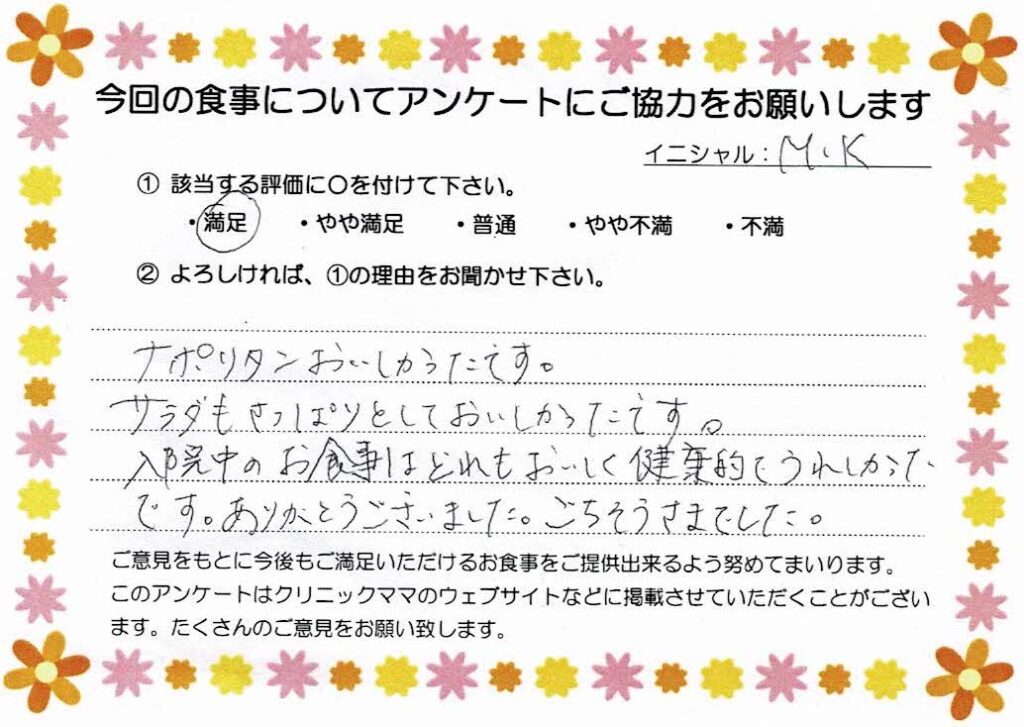 今回の食事についてアンケートにご協力をお願いします
イニシャル：M、K
① 該当する評価に〇を付けて下さい。
・満足 ・やや満足 ・普通 ・やや不満 ・不満
② よろしければ、①の理由をお聞かせ下さい。
ナポリタンおいしかったです。
サラダもさっぱりとしておいしかったです。
入院中のお食事はどれもおいしく健康的でうれしかった
です。ありがとうございました。ごちそうさまでした。
ご意見をもとに今後もご満足いただけるお食事をご提供出来るよう努めてまいります。
このアンケートはクリニックママのウェブサイトなどに掲載させていただくことがござい
ます。たくさんのご意見をお願い致します。